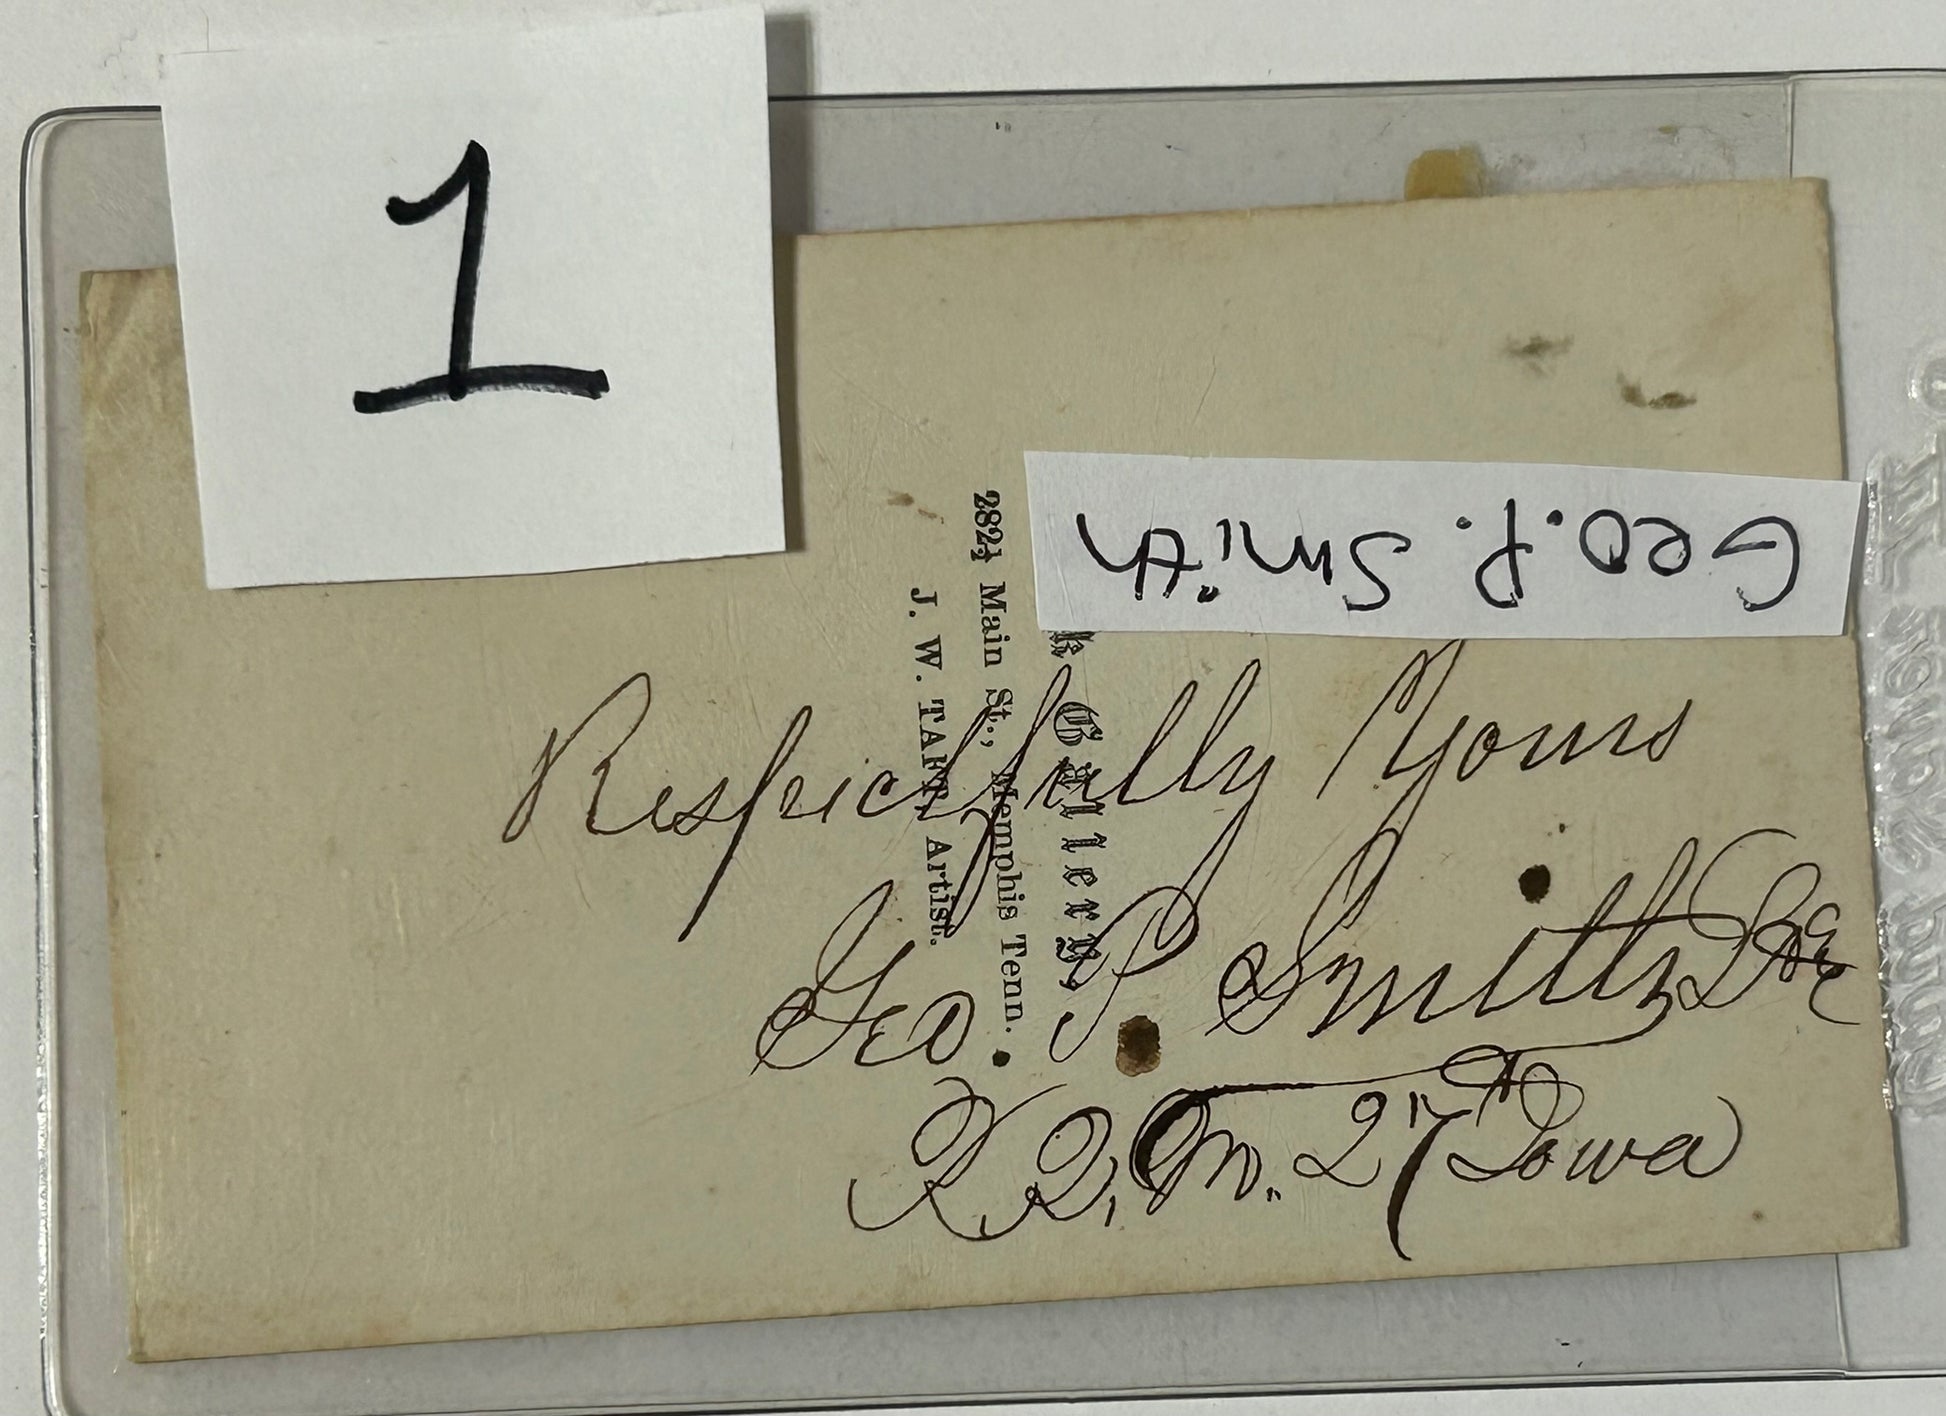 1
Geo. P. Smith
k Gallery,
282½ Main St., Memphis Tenn.
J. W. TAFT, Artist.
Respectfully Yours
Geo. P. Smith
R. Q. M. 27 Iowa